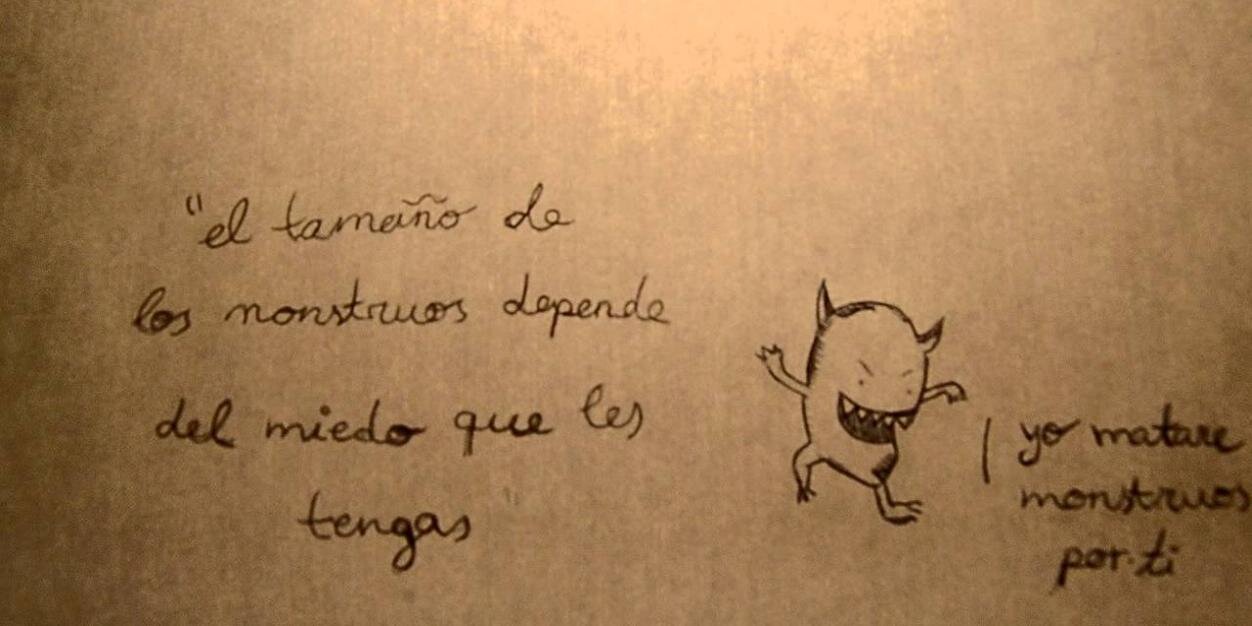 "el tamaño de
los monstruos depende
del miedo que les
tengas"
yo matare
monstruos
por ti